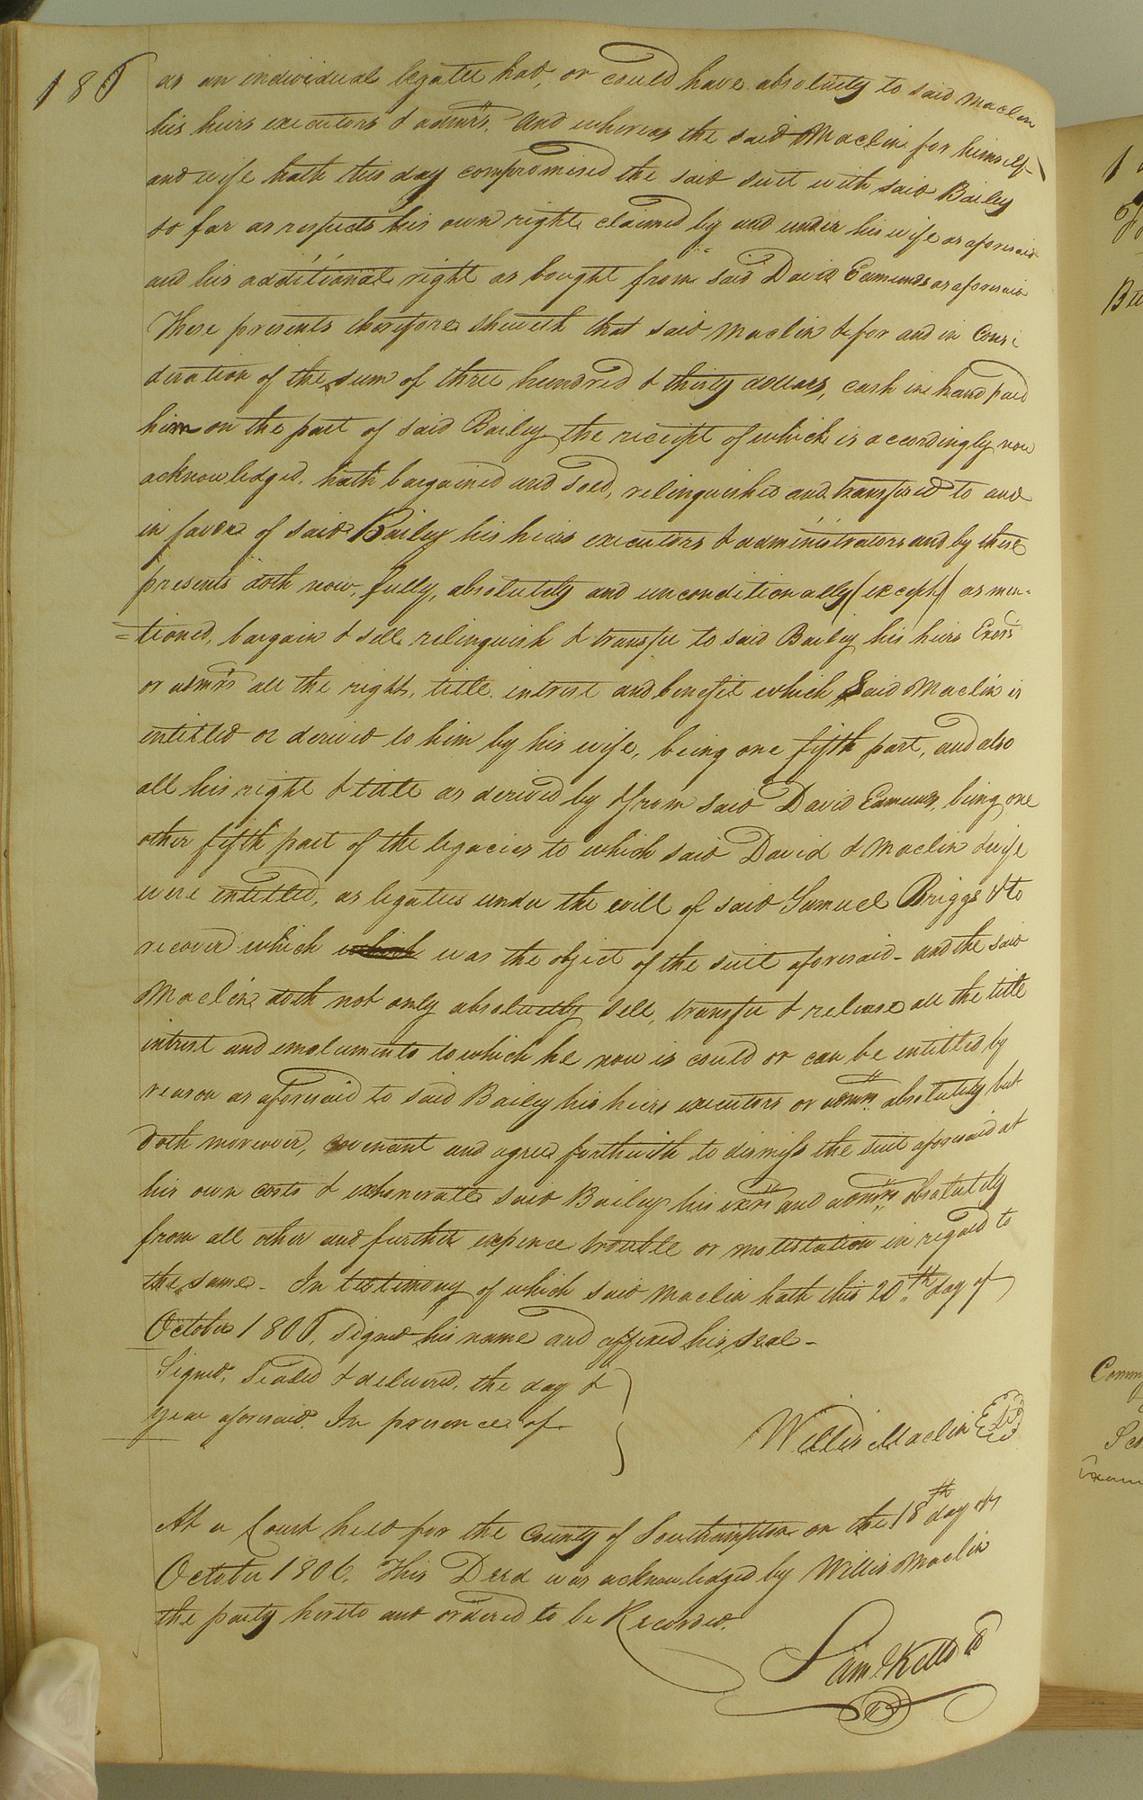 186
as an individual legatee had, or could have absolutely to said Maclin
his heirs executors & admrs. And whereas the said Maclin for himself
and wife hath this day compromised the said suit with said Bailey
so far as respects his own right claimed by and under his wife as aforesaid
and his additional right as bought from said David Edmunds as aforesaid
These presents therefore sheweth that said Maclin & for and in consi
deration of the sum of three hundred & thirty dollars, cash in hand paid
him on the part of said Bailey the receipt of which is accordingly now
acknowledged, hath bargained and sold, relinquished and transfered to and
in favor of said Bailey his heirs executors & administrators and by these
presents doth now, fully, absolutely and unconditionally (except) as men-
=tioned, bargain & sell relinquish & transfer to said Bailey his heirs Exors
or admrs all the right, title intrest and benefit which said Maclin is
intitled or derived to him by his wife, being one fifth part, and also
all his right & title as derived by & from said David Edmunds, being one
other fifth part of the legacies to which said David & Maclin & wife
were intitled, as legatees under the will of said Samuel Briggs & to
recover which which was the object of the suit aforesaid - and the said
Maclin doth not only absolutely sell, transfer & release all the title
intrest and emoluments to which he now is could or can be intitled by
reason as aforesaid to said Bailey his heirs executors or admrs. absolutely but
doth moreover, covenant and agree forthwith to dismiss the suit aforesaid at
his own costs & exhonerate said Bailey his exrs and admrs absolutely
from all other and further expence trouble or molestation in regard to
the same. In testimony of which said Maclin hath this 20th day of
October 1806, signed his name and affixed his seal -
Signed, Sealed & delivered, the day &
year aforesaid In presence of
Willis Maclin
At a Court held for the County of Southampton on the 18th day of
October 1806. This Deed was acknowledged by Willis Maclin
the party hereto and ordered to be Recorded.
Sam Kello